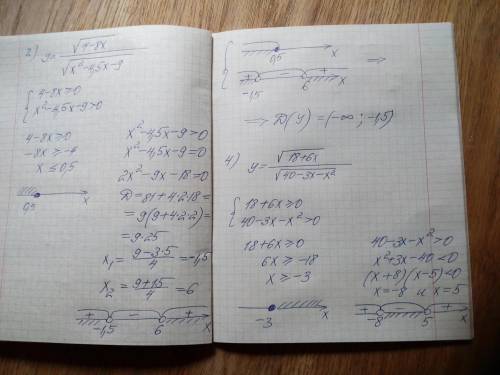 2) y = √(4-8x) / √(x²-4,5x-9)
{ 4-8x≥0
x²-4,5x-9>0
4-8x≥0
-8x ≥ -4
x ≤ 0,5
0,5 x
x²-4,5x-9>0
x²-4,5x-9=0
2x²-9x-18=0
D=81+4·2·18=
=9(9+4·2·2)=
=9·25
x₁ = (9-3·5)/4 = -1,5
x₂ = (9+15)/4 = 6
+ - +
-1,5 6 x
{ 0,5 x
+ - + ⇒
-1,5 6 x
⇒ D(y) = (-∞; -1,5)
4) y = √(18+6x) / √(40-3x-x²)
{ 18+6x≥0
40-3x-x²>0
18+6x≥0
6x ≥ -18
x ≥ -3
-3 x
40-3x-x²>0
x²+3x-40<0
(x+8)(x-5)<0
x=-8 и x=5
+ - +
-8 5 x